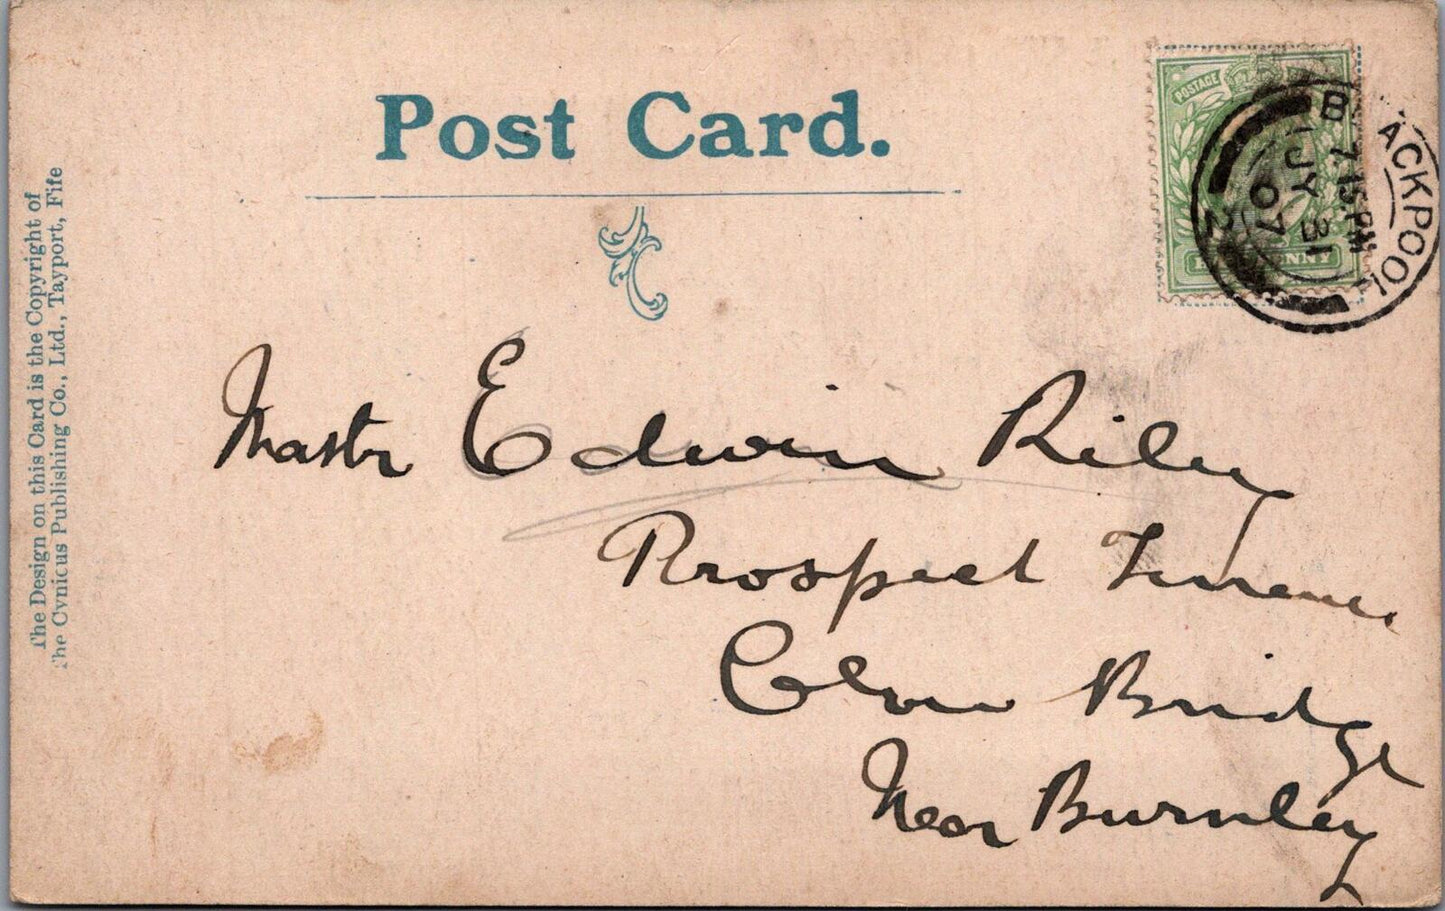 Post Card.
The Design on this Card is the Copyright of
The Cynicus Publishing Co., Ltd., Tayport, Fife
POSTAGE
BLACKPOOL
7.15PM
JY 31
07
2
Mastr Edwin Riley
Prospect Terrace
Clow Bridge
Near Burnley